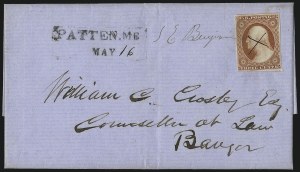 PATTEN. ME
MAY 16
S E Benjamin
William C. Crosby Esq.
Counsellor at Law
Bangor